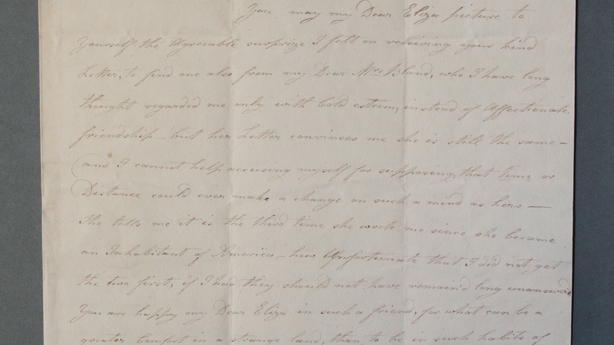 You may my Dear Eliza picture to
yourself the Agreeable surprize I felt on receiving your kind
Letter, to find one also from my Dear Mrs Bland, who I have long
thought regarded me only with Cold esteem, instead of Affectionate
friendship – but her Letter convinces me she is still the same –
(and I cannot help accusing myself for supposing, that time or
Distance could ever make a change in such a mind as hers –
She tells me it is the third time she wrote me since she became
an Inhabitant of America – how Unfortunate that I did not get
the two first, if I had they should not have remain'd long unanswered
You are happy my Dear Eliza in such a friend, for what can be a
greater Comfort in a strange land, than to be in such habits of